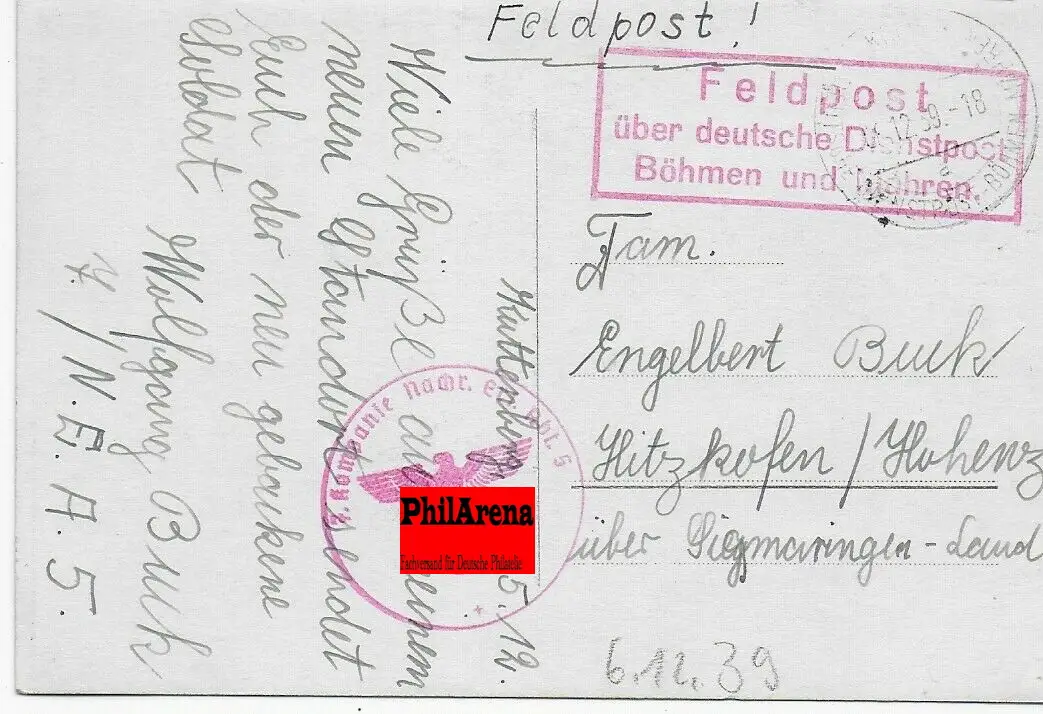 Feldpost!
Feldpost
über deutsche Dienstpost
Böhmen und Mähren.
12.39.-18
Fam.
Engelbert Buck
Hitzkofen / Hohenz
über Sigmaringen-Land
6.12.39
Kuttenberg, 5.12.
Viele Grüße aus meinem
neuen Standort sendet
Euch der neu gebackene
Soldat Wolfgang Buck
7./N.E.A.5.
Kompanie Nachr. Ers. Abt. 5
PhilArena
Fachversand für Deutsche Philatelie